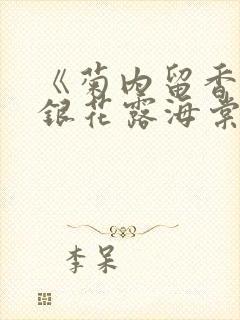 《菊内留香
银花露海棠
李呆